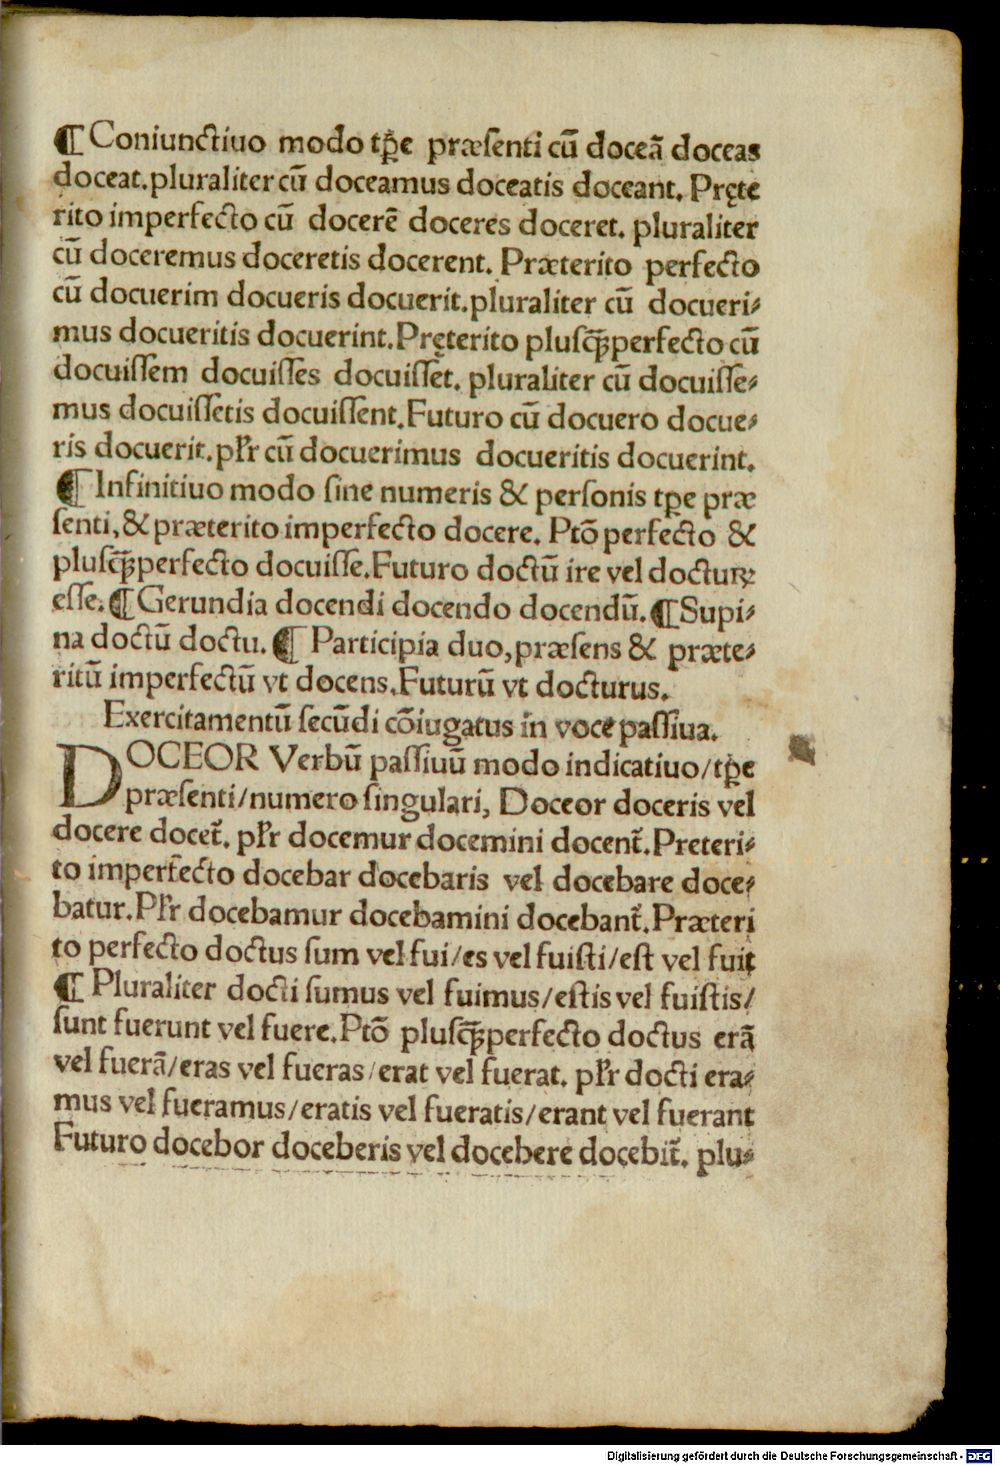 ¶ Coniunctiuo modo tp̱e præsenti cū doceā doceas
doceat. pluraliter cū doceamus doceatis doceant. Pręte
rito imperfecto cū docerē doceres doceret. pluraliter
cū doceremus doceretis docerent. Præterito perfecto
cū docuerim docueris docuerit. pluraliter cū docueri⸗
mus docueritis docuerint. Pręterito plusꝗ̄perfecto cū
docuissem docuisses docuisset. pluraliter cū docuisse⸗
mus docuissetis docuissent. Futuro cū docuero docue⸗
ris docuerit. plr̄ cū docuerimus docueritis docuerint.
¶ Infinitiuo modo sine numeris & personis tpe præ
senti, & præterito imperfecto docere. Ptō perfecto &
plusꝗ̄perfecto docuisse. Futuro doctū ire vel docturꝝ
esse. ¶ Gerundia docendi docendo docendū. ¶ Supi⸗
na doctū doctu. ¶ Participia duo, præsens & præte⸗
ritū imperfectū vt docens. Futurū vt docturus.
Exercitamentū secūdi cōiugatus in voce passiua.
DOCEOR Verbū passiuū modo indicatiuo/tp̄e
præsenti/numero singulari, Doceor doceris vel
docere docet̄. plr̄ docemur docemini docent̄. Preteri⸗
to imperfecto docebar docebaris vel docebare doce⸗
batur. Plr̄ docebamur docebamini docebant̄. Præteri
to perfecto doctus sum vel fui/es vel fuisti/est vel fuit
¶ Pluraliter docti sumus vel fuimus/estis vel fuistis/
sunt fuerunt vel fuere. Ptō plusꝗ̄perfecto doctus erā
vel fuerā/eras vel fueras/erat vel fuerat. plr̄ docti era⸗
mus vel fueramus/eratis vel fueratis/erant vel fuerant
Futuro docebor doceberis vel docebere docebit̄. plu⸗
Digitalisierung gefördert durch die Deutsche Forschungsgemeinschaft - DFG